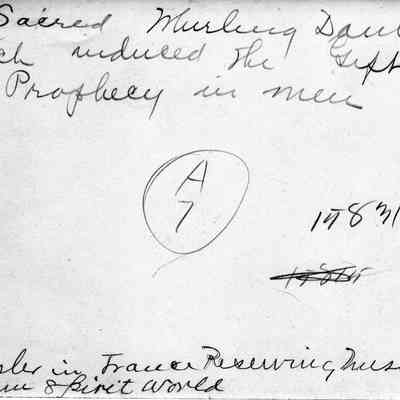 Sacred Whirling Dan
ch induced the Gift
Prophecy in men
A
7
15831
in Trance Receiving
Spirit World